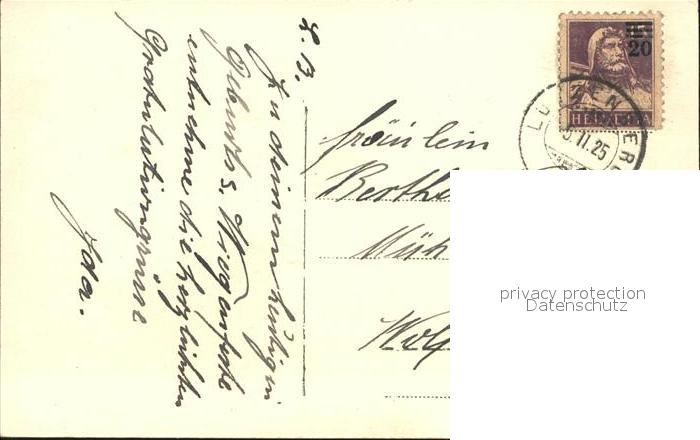 L. B.
Zu deinem heutigen
Geburts
entnehme die herzlichsten
Gratulationsgrüsse
Ida.
Fräulein
Berthe
Müh
Wolf
20
HELVETIA
LUZERN
II. 25
privacy protection
Datenschutz